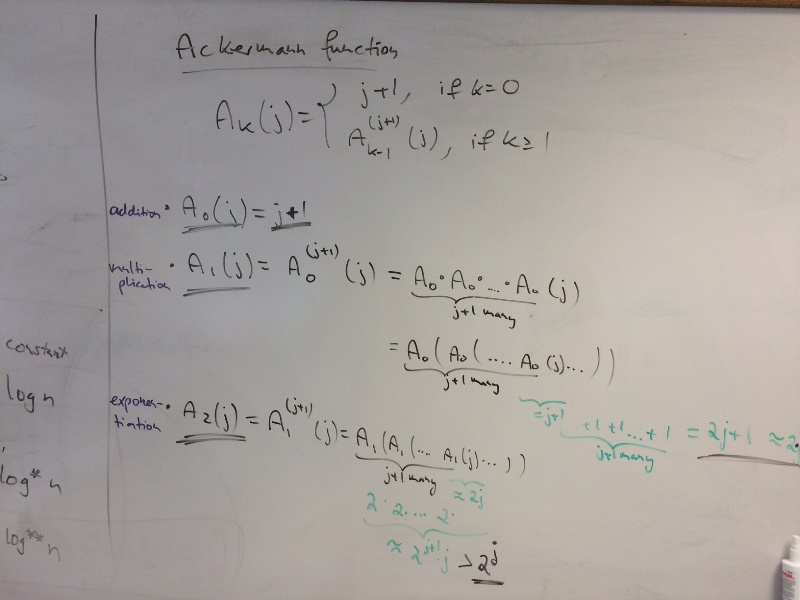 Ackermann function
A_k(j) = { j+1, if k=0
A_{k-1}^{(j+1)}(j), if k≥1
addition • A_0(j) = j+1
multi-plication • A_1(j) = A_0^{(j+1)}(j) = A_0 ∘ A_0 ∘ .... ∘ A_0 (j)
j+1 many
= A_0(A_0(.... A_0(j)...))
j+1 many
=j+1 +1+1...+1 = 2j+1 ≈ 2j
j+1 many
exponen-tiation • A_2(j) = A_1^{(j+1)}(j) = A_1(A_1(.... A_1(j)...))
j+1 many ≈ 2j
2 · 2 .... 2 ·
≈ 2^{j+1} j > 2^j
constant
log n
log* n
log** n